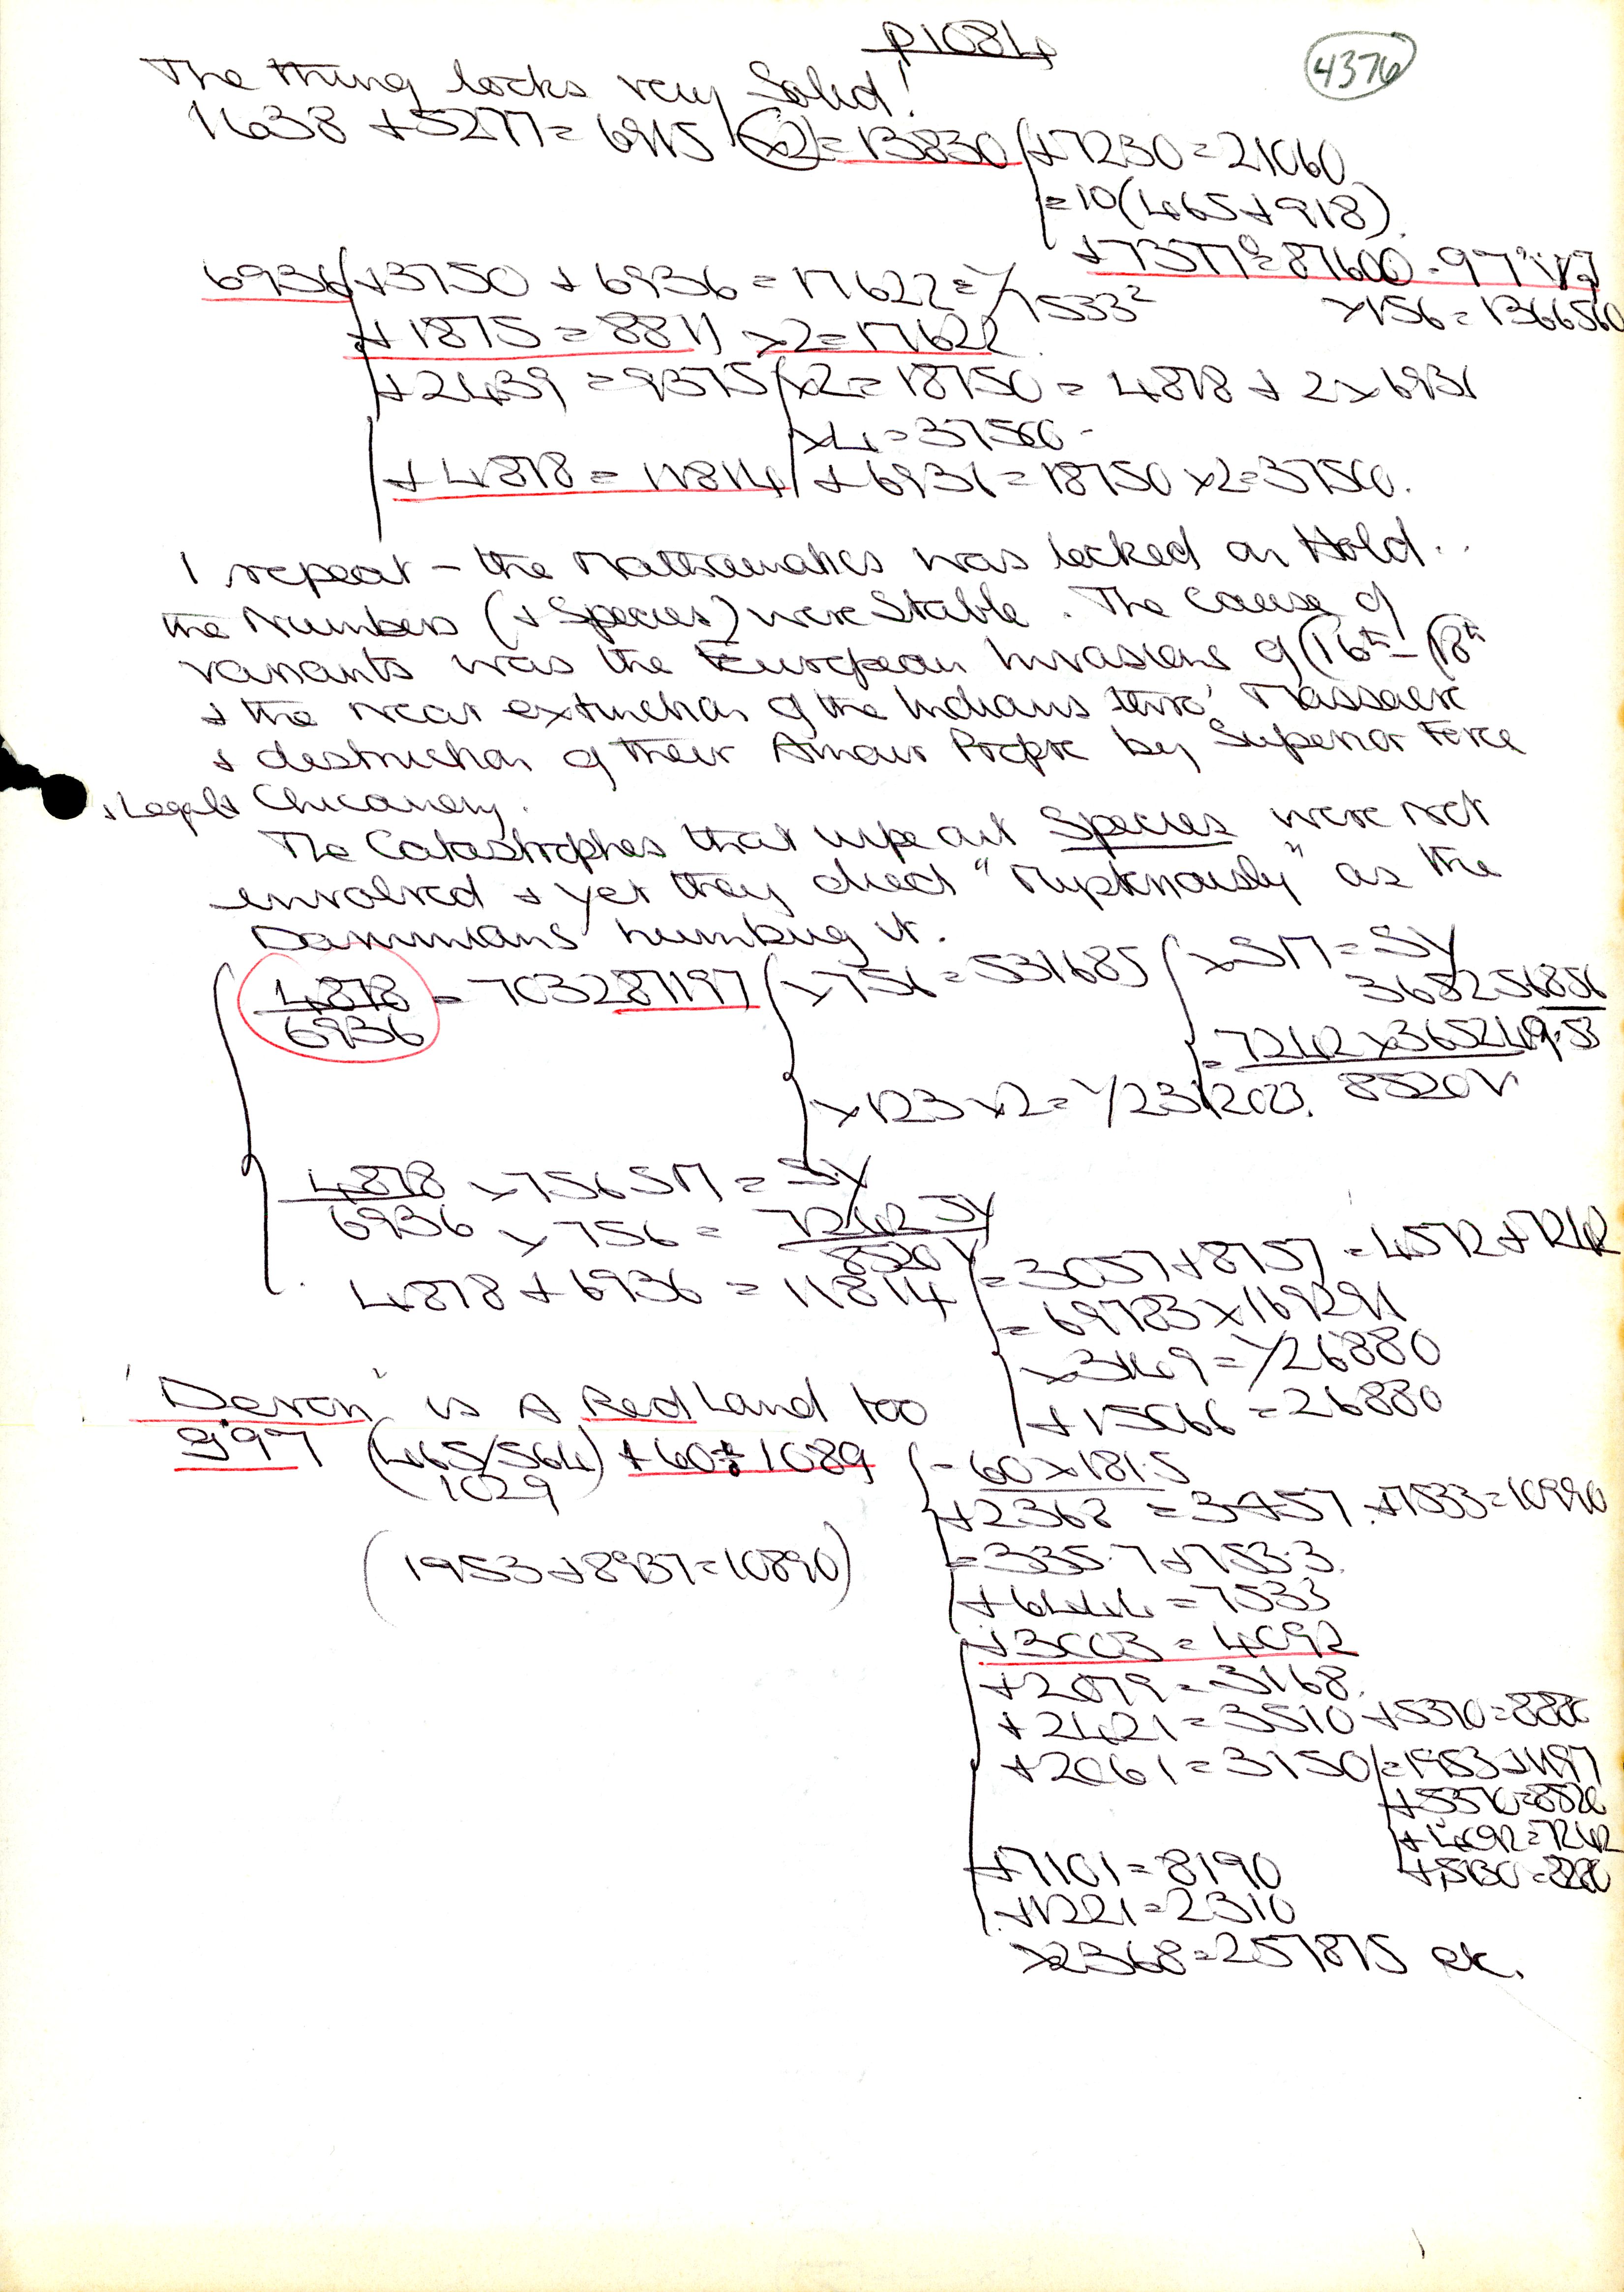 p1084
4376
The thing locks very Solid!
1638 + 5277 = 6915 (x2) = 13830 + 7230 = 21060
= 10(465 + 918)
+ 73770 = 87600
x156 = 1366560
6936 + 3750 + 6936 = 17622 = Y/7533²
+ 1875 = 8811 x2 = 17622
+ 2439 = 9375 x2 = 18750 = 4878 + 2x6936
x4 = 37500
+ 4878 = 11814 + 6936 = 18750 x2 = 37500.
I repeat - the Mathematics was locked on Hold..
the Numbers (+ Species) were Stable. The Cause of
variants was the European Invasions of (16th - 18th
+ the near extinction of the Indians thro' Massacre
+ destruction of their Amour Propre by Superior Force
+ Legal Chicanery.
The Catastrophes that wipe out Species were not
involved + yet they died "Mysteriously" as the
Darwinians humbug it.
4878
6936 = 703287197 x756 = 531685 x SM = SY
368256856
= 7242 x 365249.53
8520
x123 x2 = Y/
4878 x 756 SM = SY
6936 x 756 = 7242 SY
8520 Y
4878 + 6936 = 11814 = 3057 + 8757 = 4572 + 7242
= 69783 x 169291
x 3149 = Y/26880
+ 15066 = 26880
'Devon' is A Red Land too
(465/564) + 60 = 1089 = 60 x 181.5
1029
+ 2368 = 3457 + 7533 = 10990
(1953 + 8937 = 10890)
= 335.7 + 753.3
+ 6444 = 7533
+ 3003 = 4092
+ 2079 = 3168
+ 2421 = 3510 + 5370 = 8880
+ 2061 = 3150 = 1953 + 1197
+ 5370 = 8520
+ 4092 = 7242
+ 5130 = 8280
+ 7101 = 8190
+ 1221 = 2310
x 2368 = 257875 etc.